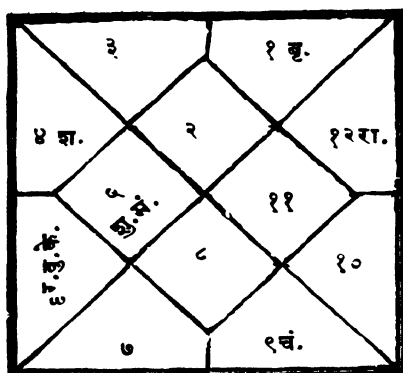 ३
१ बृ.
४ श.
२
१२रा.
५
शु.मं.
११
६र.बु.के.
८
१०
७
९चं.